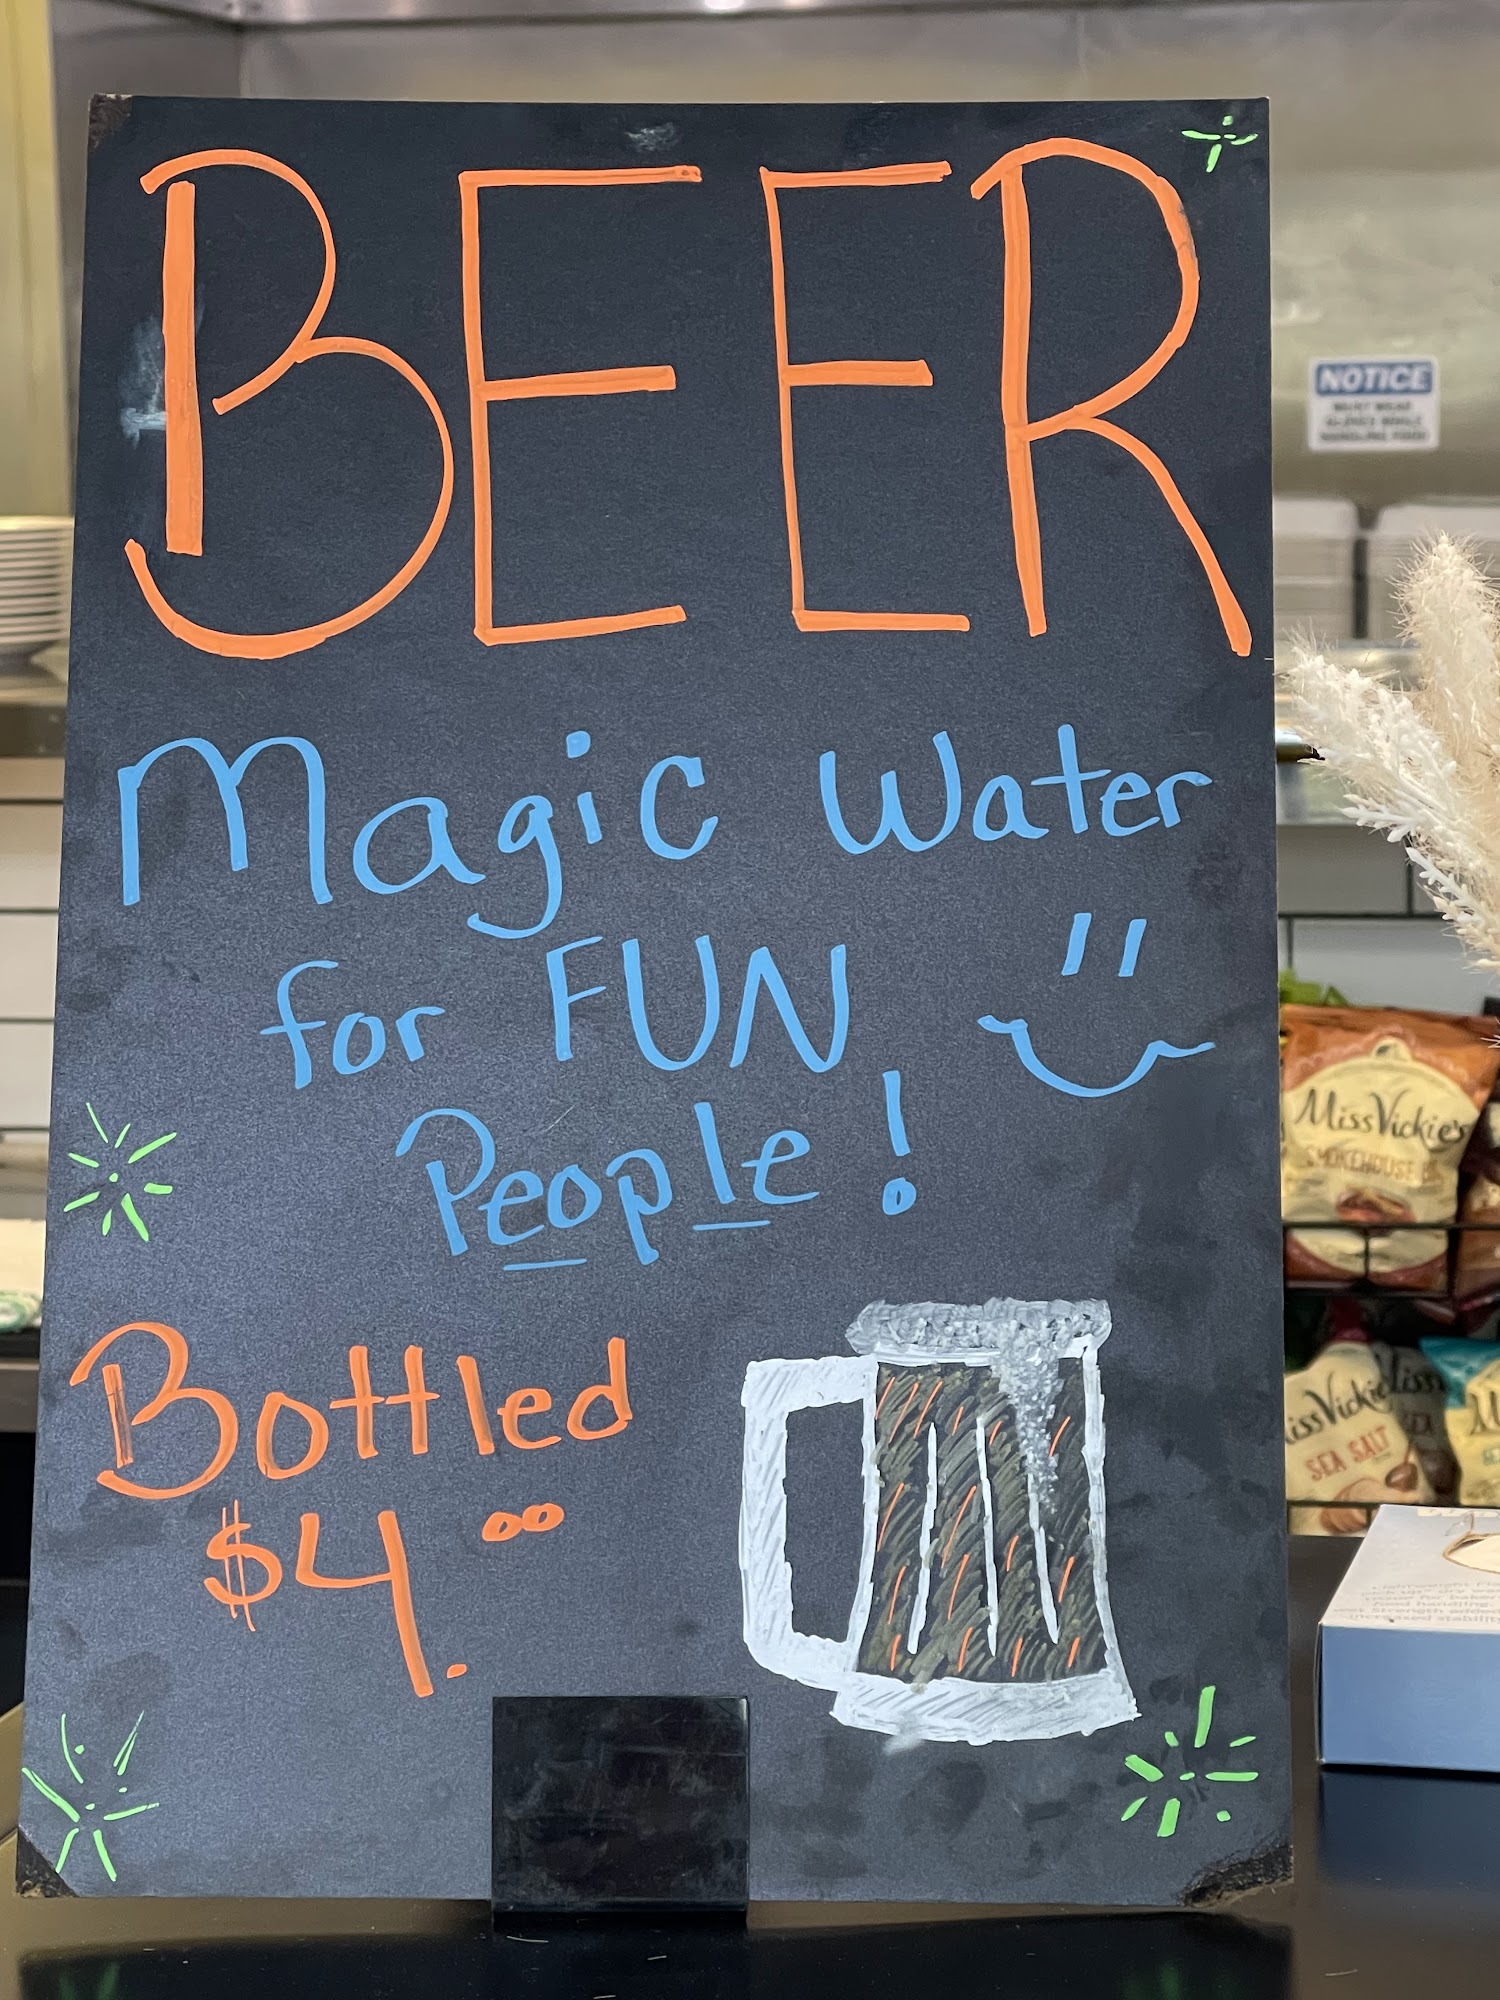 BEER
Magic Water
for FUN
People!
Bottled
$4.00
NOTICE
MUST WEAR
GLOVES WHILE
HANDLING FOOD
Miss Vickie's
SMOKEHOUSE B
iss Vickie
SEA SALT